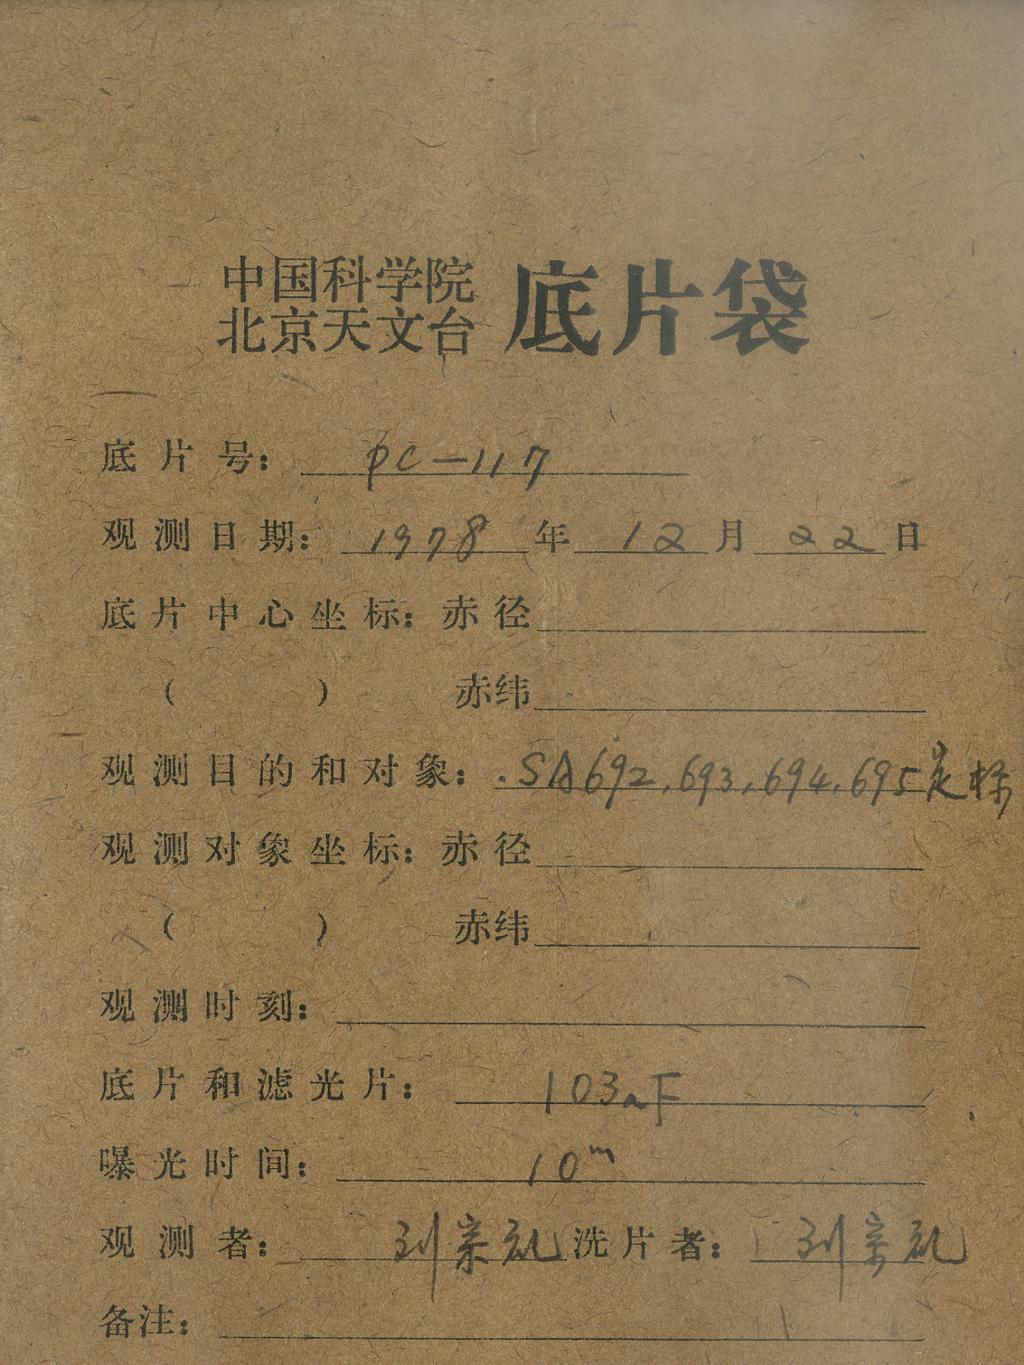 中国科学院
北京天文台 底片袋
底片号: PC-117
观测日期: 1978年12月22日
底片中心坐标: 赤径
( ) 赤纬
观测目的和对象: .SA692,693,694,695定标
观测对象坐标: 赤径
( ) 赤纬
观测时刻:
底片和滤光片: 103aF
曝光时间: 10ᵐ
观测者: 刘 洗片者: 刘
备注: